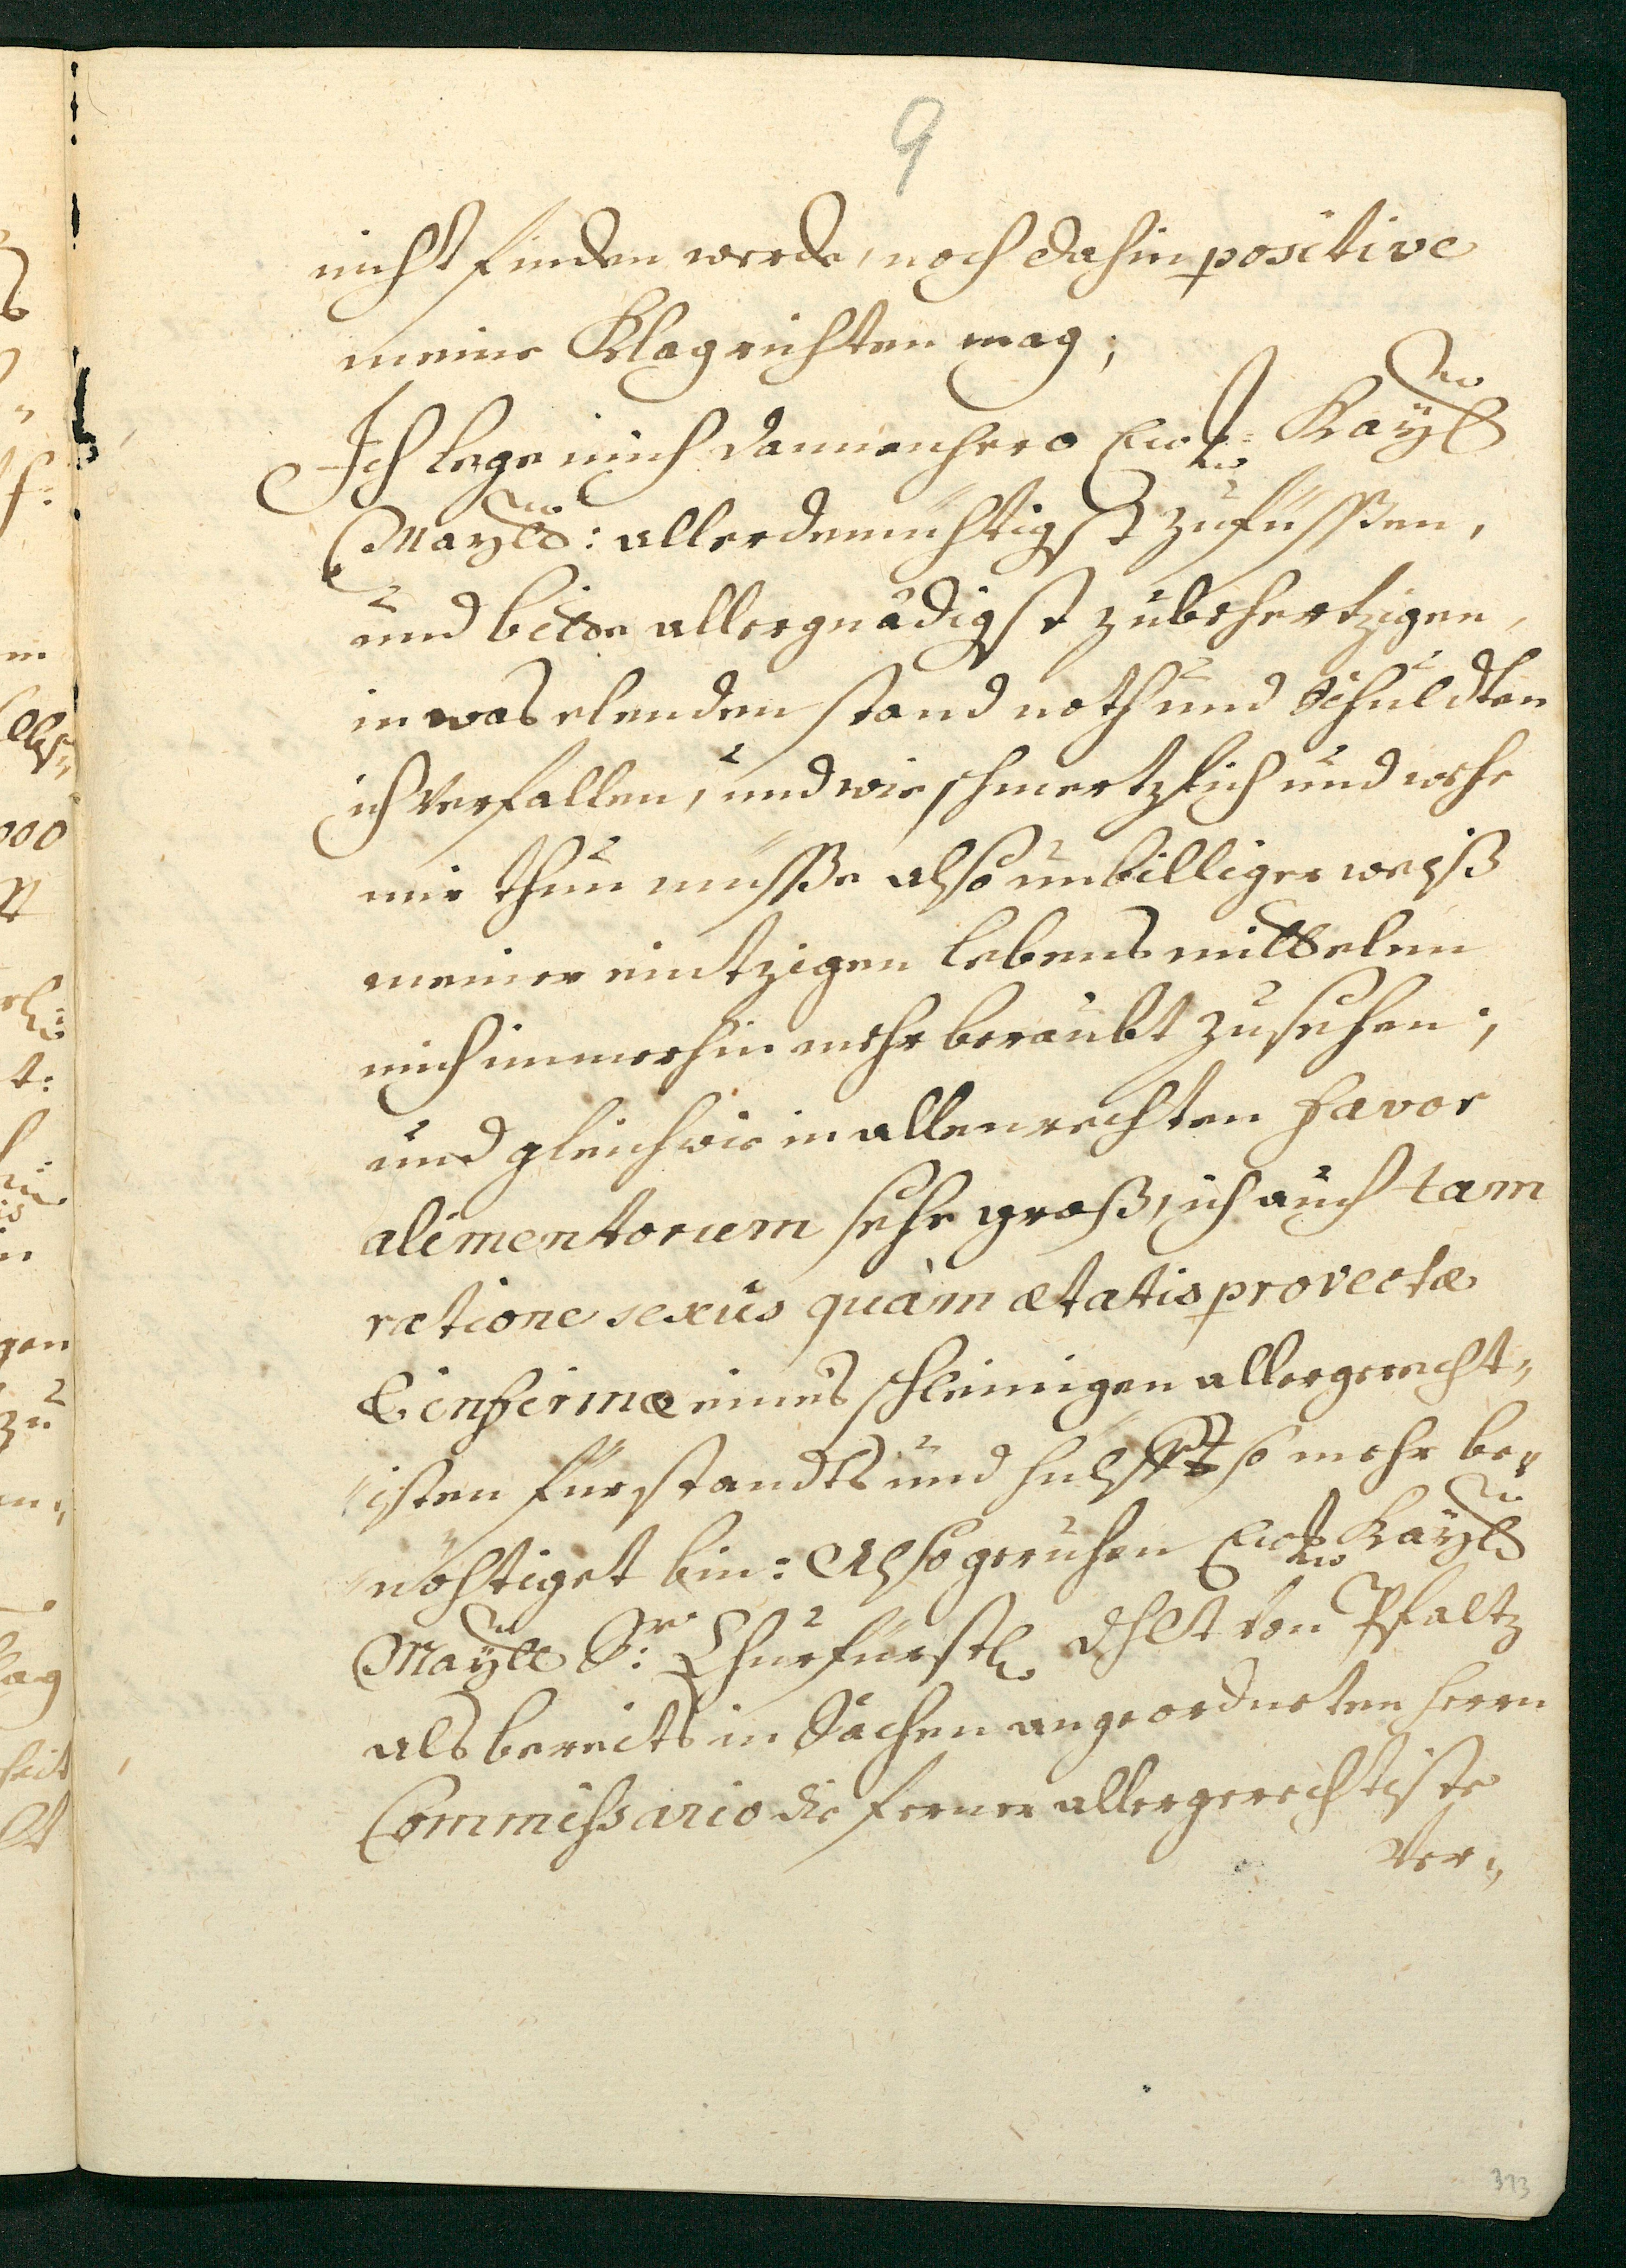 9
nicht finden werde, noch dahin positive
meine Klag richten mag;
Ich lege mich dannenhero Ew: Kayl
Maytt: allerdemühtigst zufüssßen,
und bitte allergnädigst zubehertzigen,
in was elenden stand noth und Schuldten
ich verfallen, und wie schmertzlich und wehe
mir thun müsße also unbilliger weiß
meiner eintzigen lebens mittelen
mich immerhin mehr beraubt zusehen;
und gleichwie in allen rechten favor
alimentorum sehr groß, ich auch tam
ratione sexus quàm ætatis provectæ
& infirmæ eines schleunigen allergerecht„
„isten fürstandts und hulff so mehr be„
„nöhtiget bin: Also geruhen Ew: Kayl
Maytt Sr: Churfürstl: dhlt von Pfaltz
als bereits in Sachen angeordneten herrn
Commissario die ferner allergerechtiste
Ver„
373